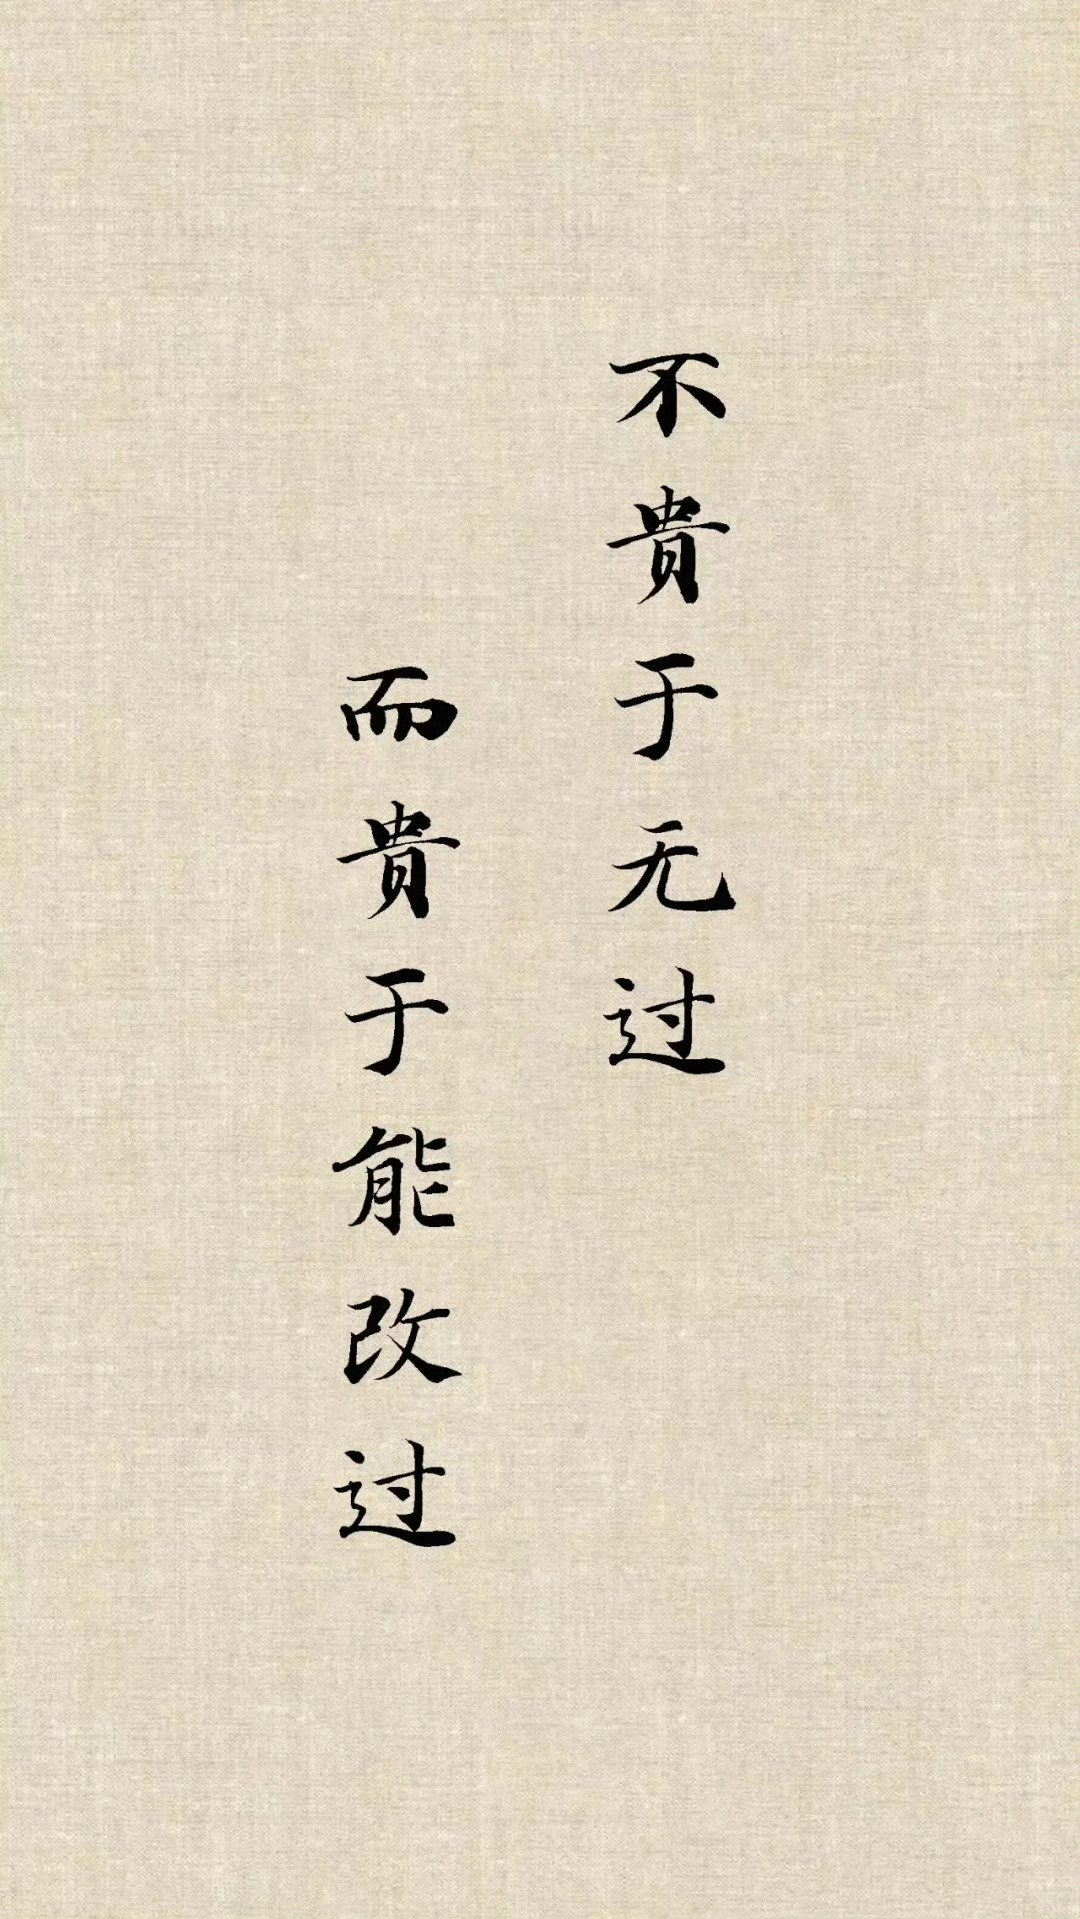 不贵于无过
而贵于能改过